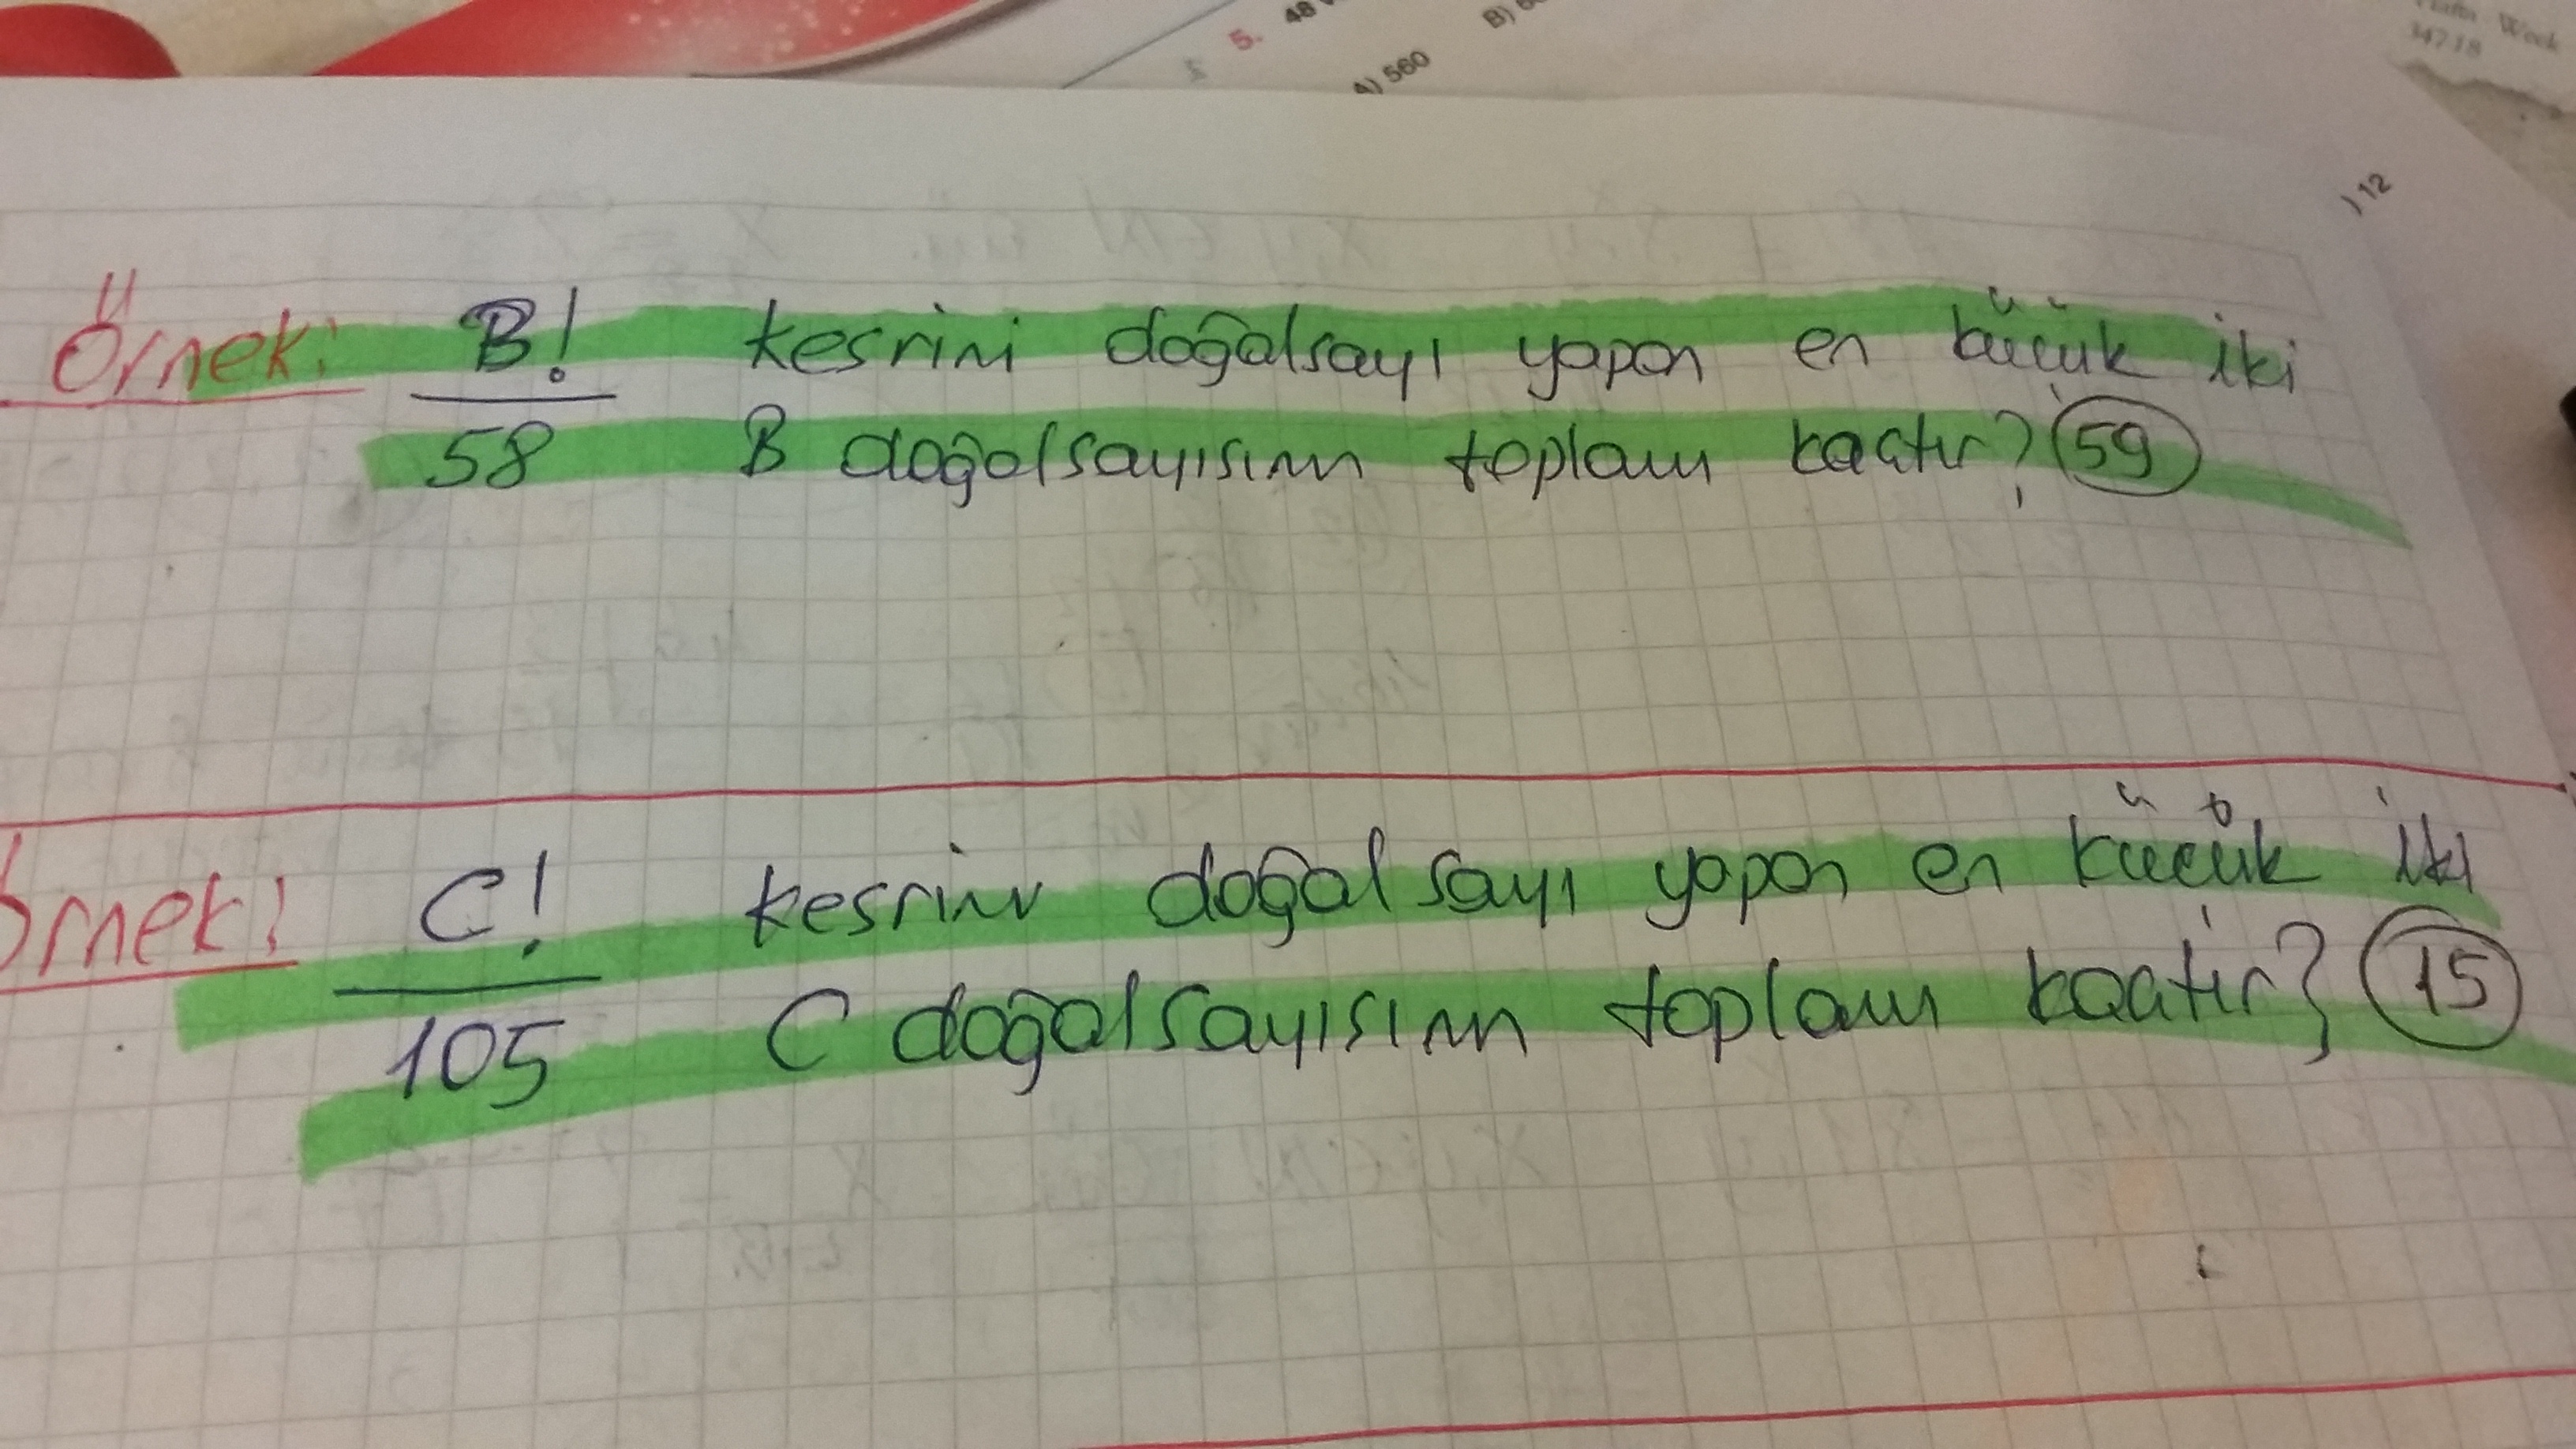 5. 48
B)
A) 560
Week
34718
) 12
Örnek: B! kesrini doğalsayı yapan en küçük iki
58 B doğalsayısının toplamı kaçtır? 59
Örnek: C! kesrini doğalsayı yapan en küçük iki
105 C doğalsayısının toplamı kaçtır? 15